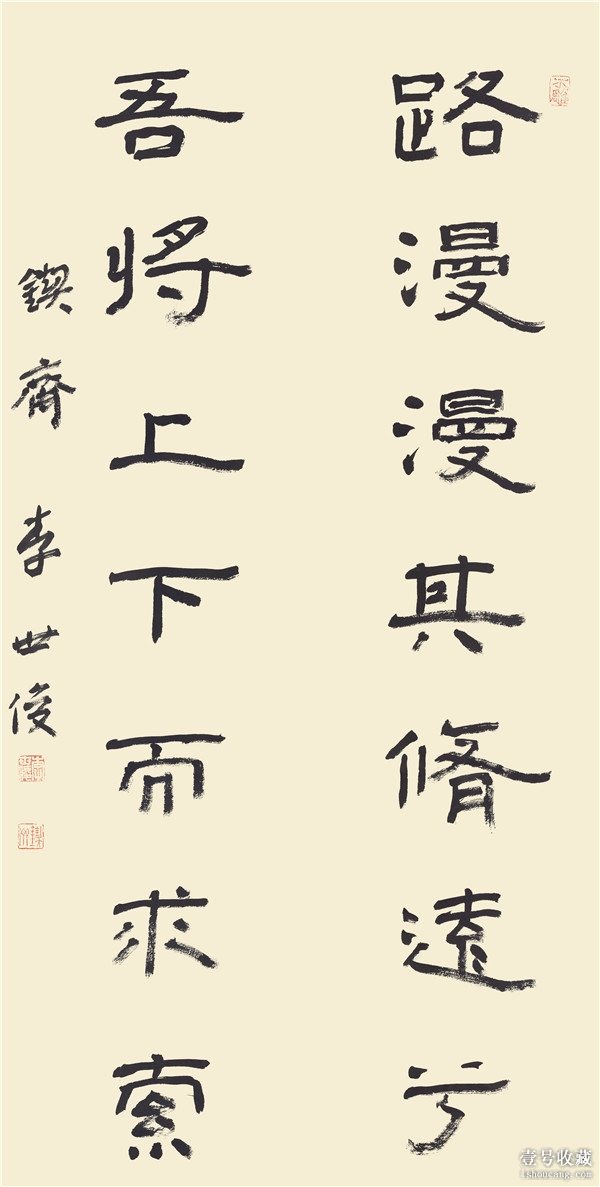 路漫漫其脩遠兮
吾将上下而求索
鍥齋 李世俊
壹号收藏
1shoucang.com